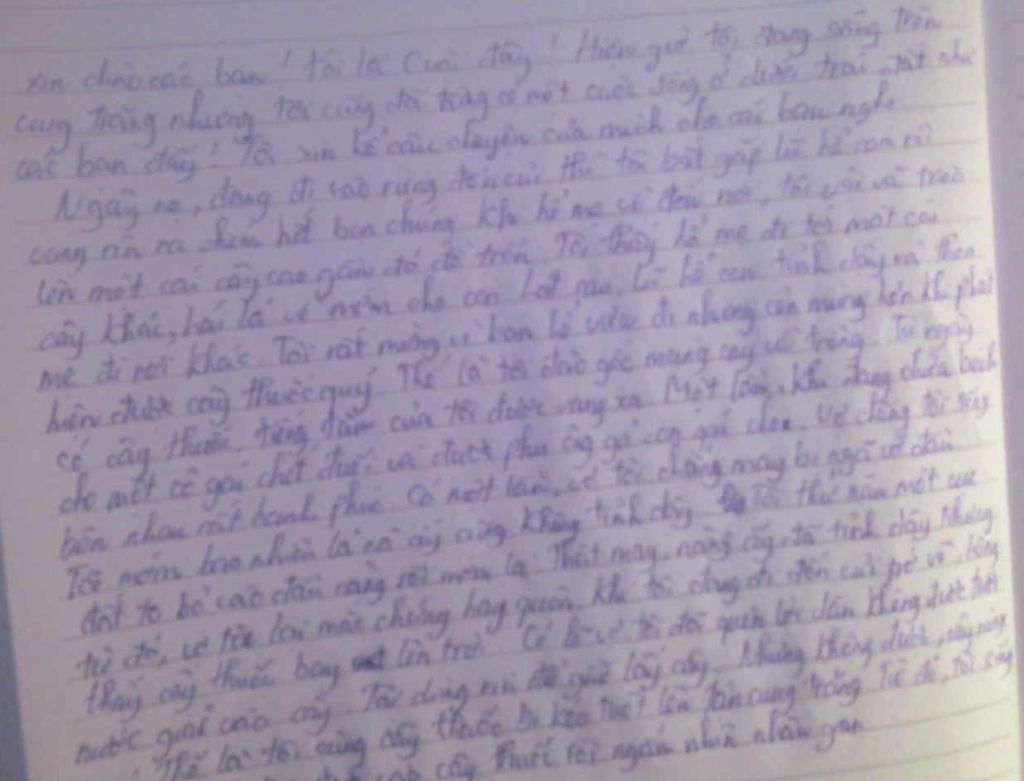 xin chào các bạn! tôi là Cuội đây! Hiện giờ tôi đang sống trên
cung trăng nhưng tôi cũng đã từng có một cuộc sống ở dưới trái đất như
các bạn đấy! Tôi xin kể câu chuyện của mình cho các bạn nghe
Ngày nọ, đang đi vào rừng đốn củi thì tôi bắt gặp lũ hổ con rồi
cung rìu ra chém hết bọn chúng khi hổ mẹ về đến nơi, tôi vội vã trèo
lên một cái cây cao gần đó để trốn. Tôi thấy hổ mẹ đi tới một cái
cây khác, hái lá về mớm cho con. Lát sau, lũ hổ con tỉnh dậy và theo
mẹ đi nơi khác. Tôi rất mừng vì bọn hổ vừa đi nhưng còn mừng hơn khi phát
hiện được cây thuốc quý. Thế là tôi đào gốc mang cây về trồng. Từ ngày
có cây thuốc, tiếng tăm của tôi được vang xa. Một lần, khi đang chữa bệnh
cho một cô gái chết đuối và được phú ông gả con gái cho. Vợ chồng tôi sống
bên nhau rất hạnh phúc. Có một lần, vợ tôi chẳng may bị ngã vỡ đầu
Tôi mớm bao nhiêu lá mà cũng không tỉnh dậy. Tôi thử nặn một cục
đất to bỏ vào đầu nàng rồi mớm lá. Thật may, nàng ấy đã tỉnh dậy. Nhưng
từ đó, vợ tôi lại mắc chứng hay quên. Khi tôi đang đi đốn củi về, bỗng
thấy cây thuốc bay lên trời. Có lẽ vợ tôi đã quên lời dặn không được tưới
nước giải vào cây. Tôi dùng rìu để giữ lấy cây. Nhưng không được,
Thế là tôi cùng cây thuốc bị kéo tuột lên tận cung trăng. Từ đó, tôi sống
cây thuốc rồi ngắm nhìn nhân gian